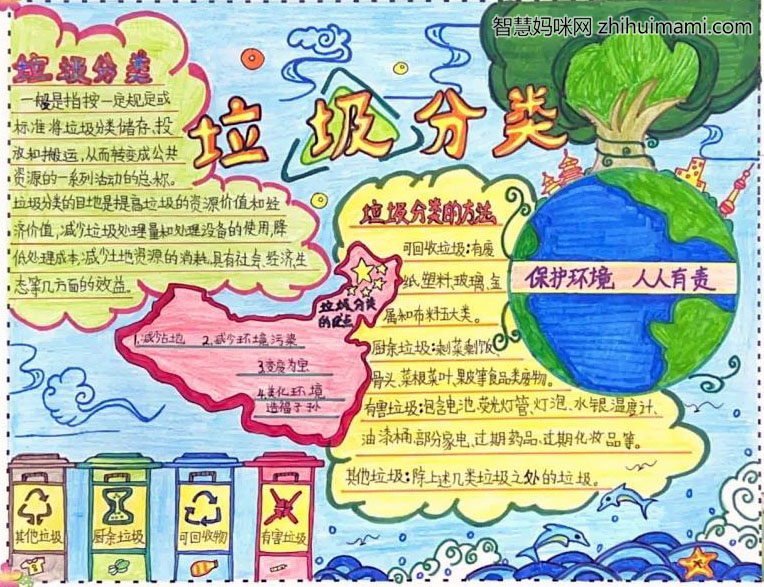 智慧妈咪网 zhihuimami.com
垃圾分类
垃圾分类
一般是指按一定规定或
标准将垃圾分类储存、投
放和搬运,从而转变成公共
资源的一系列活动的总称。
垃圾分类的目地是提高垃圾的资源价值和经
济价值,减少垃圾处理量和处理设备的使用,降
低处理成本,减少土地资源的消耗,具有社会、经济、生
态等几方面的效益。
垃圾分类的方法
可回收垃圾:有废
纸、塑料、玻璃、金
属和布料五大类。
厨余垃圾:剩菜剩饭、
骨头、菜根菜叶、果皮等食品类废物。
有害垃圾:包含电池、荧光灯管、灯泡、水银温度计、
油漆桶、部分家电、过期药品、过期化妆品等。
其他垃圾:除上述几类垃圾之处的垃圾。
保护环境 人人有责
垃圾分类
的优点
1.减少占地 2.减少环境污染
3.变废为宝
4.美化环境
造福子孙
其他垃圾
厨余垃圾
可回收物
有害垃圾